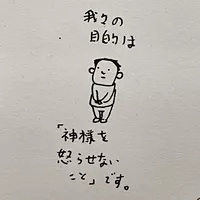 我々の
目的は
「神様を
怒らせない
こと」です。